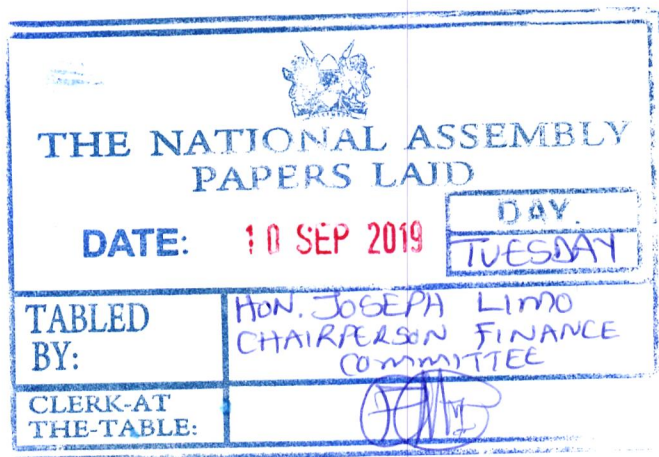 THE NATIONAL ASSEMBLY
PAPERS LAID
DATE: 10 SEP 2019
DAY.
TUESDAY
TABLED BY:
HON. JOSEPH LIMO
CHAIRPERSON FINANCE
COMMITTEE
CLERK-AT
THE-TABLE: